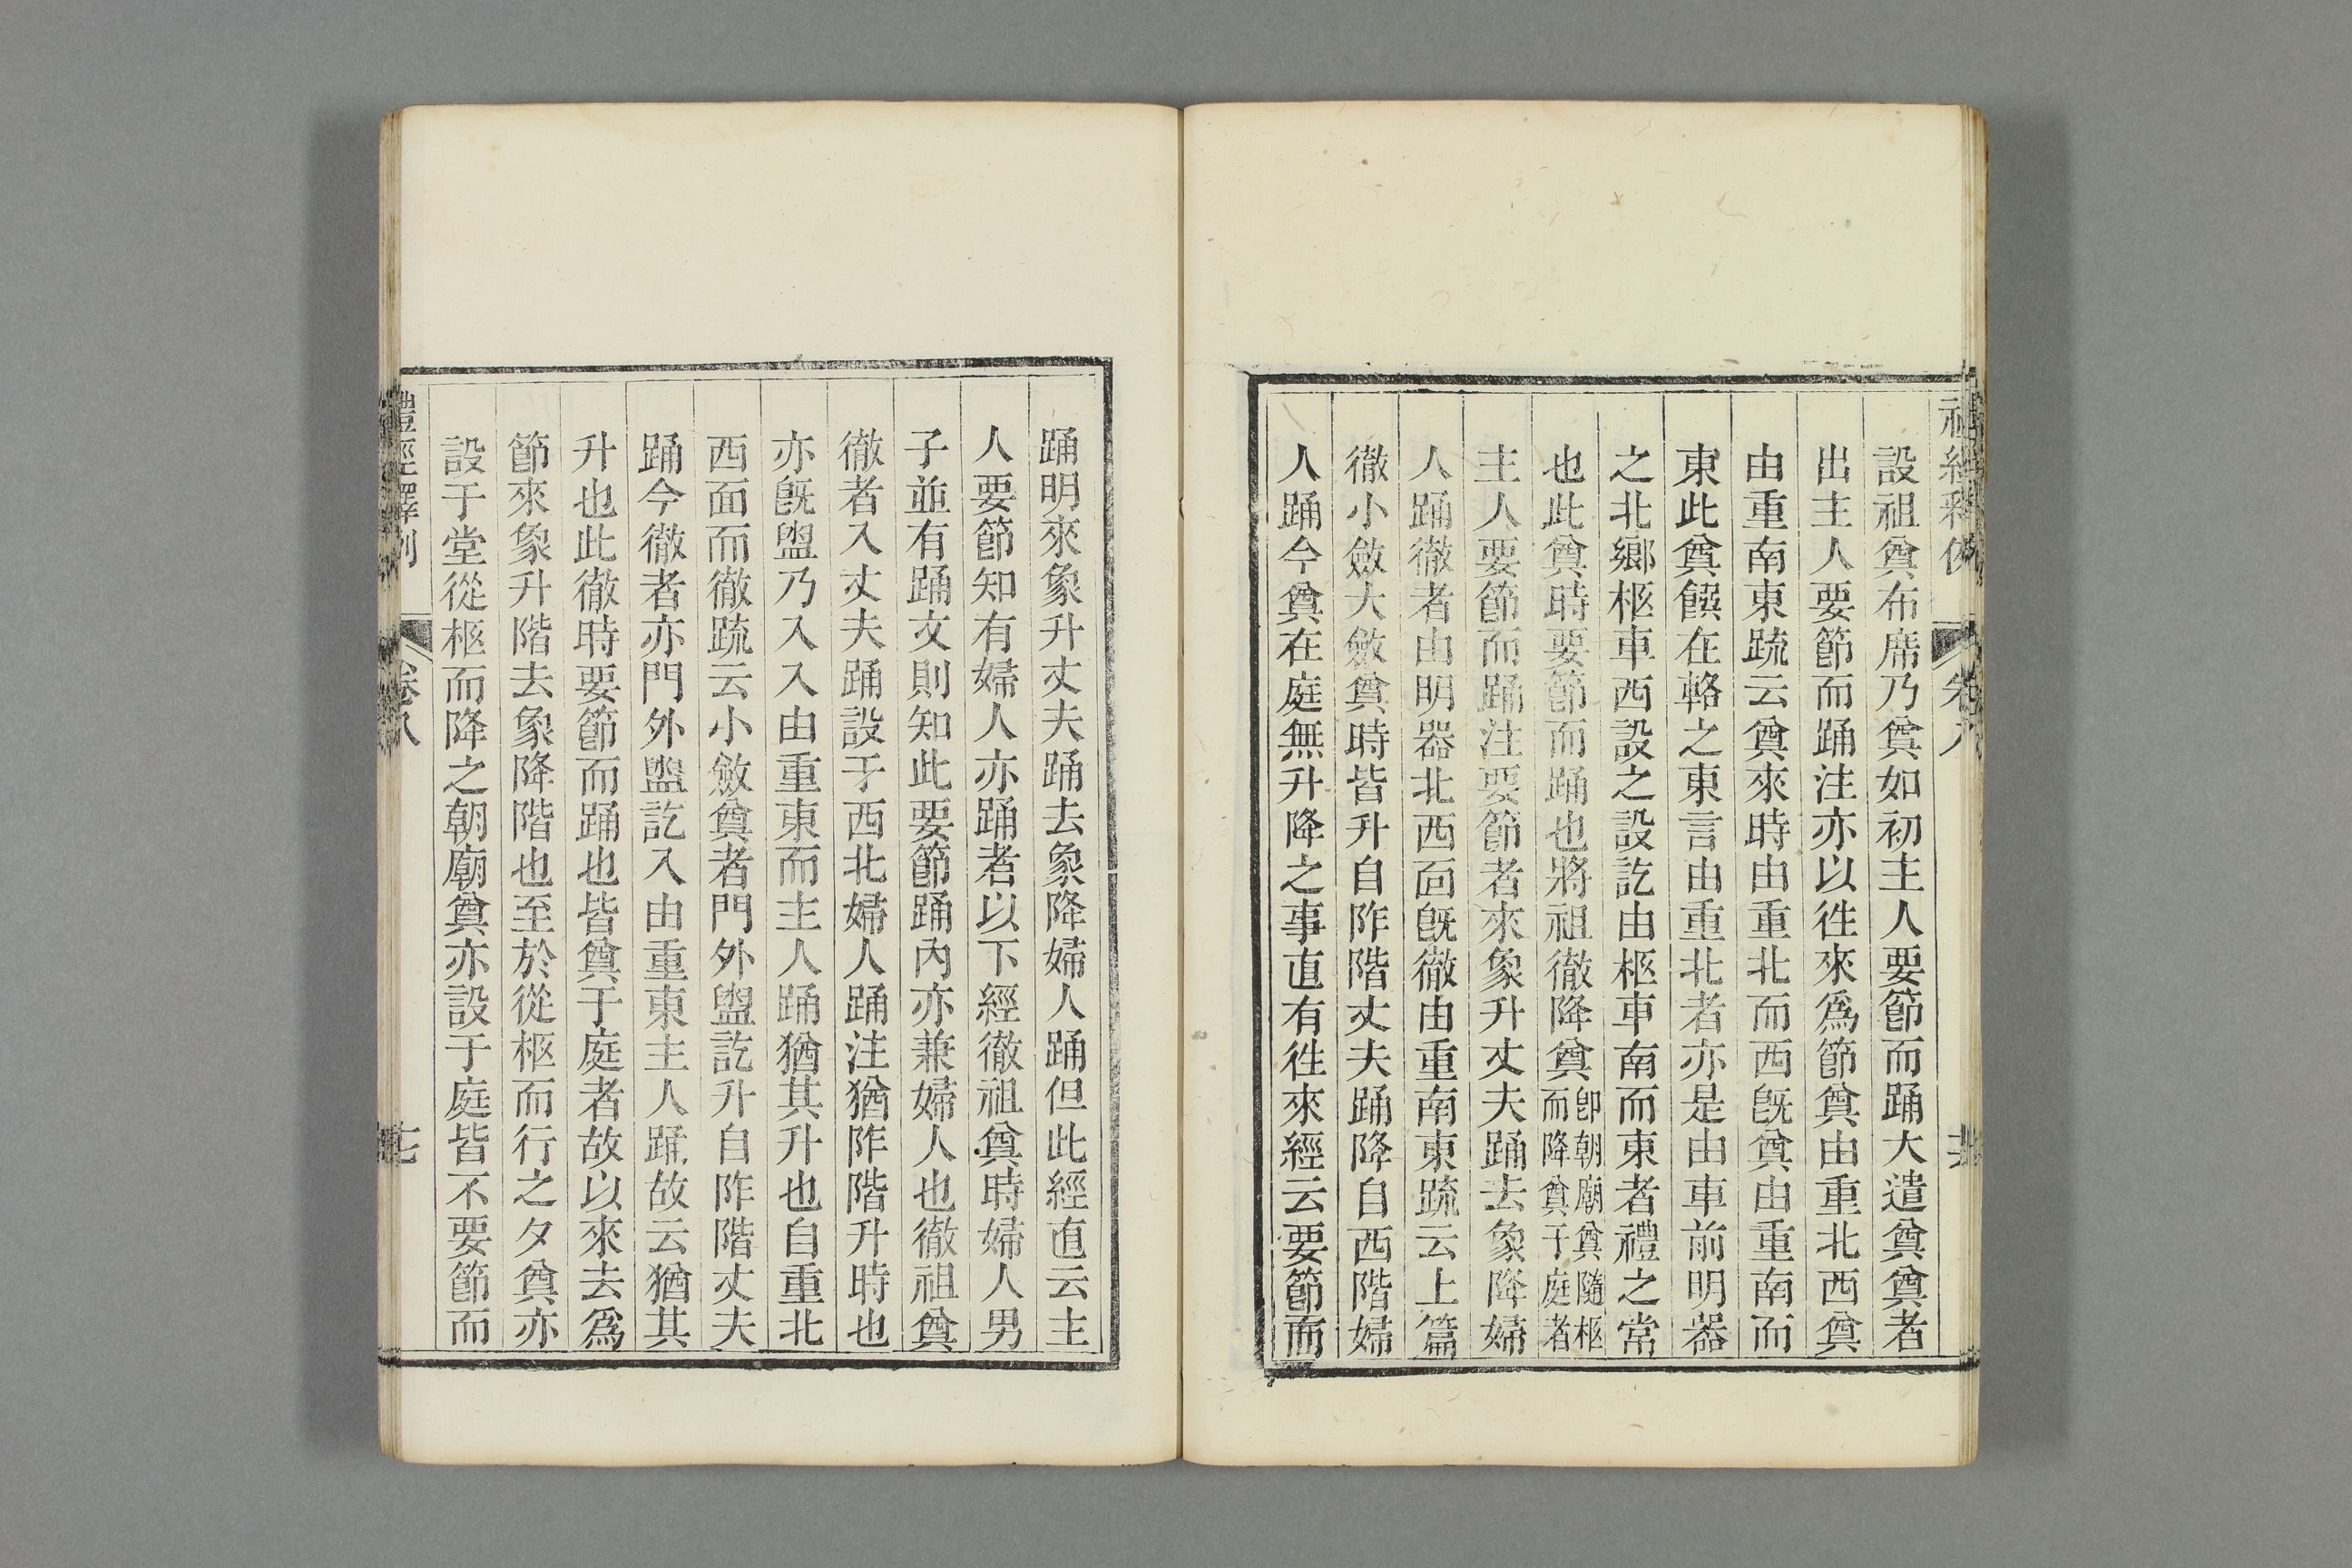 設祖奠布席乃奠如初主人要節而踊大遣奠奠者
出主人要節而踊注亦以徃來爲節奠由重北西奠
由重南東䟽云奠來時由重北而西旣奠由重南而
東此奠饌在輅之東言由重北者亦是由車前明器
之北鄉柩車西設之設訖由柩車南而東者禮之常
也此奠時要節而踊也將祖徹降奠卽朝廟奠隨柩而降奠于庭者
主人要節而踊注要節者來象升丈夫踊去象降婦
人踊徹者由明器北西面旣徹由重南東䟽云上篇
徹小斂大斂奠時皆升自阼階丈夫踊降自西階婦
人踊今奠在庭無升降之事直有徃來經云要節而
踊明來象升丈夫踊去象降婦人踊但此經直云主
人要節知有婦人亦踊者以下經徹祖奠時婦人男
子並有踊文則知此要節踊內亦兼婦人也徹祖奠
徹者入丈夫踊設于西北婦人踊注猶阼階升時也
亦旣盥乃入入由重東而主人踊猶其升也自重北
西面而徹䟽云小斂奠者門外盥訖升自阼階丈夫
踊今徹者亦門外盥訖入由重東主人踊故云猶其
升也此徹時要節而踊也皆奠于庭者故以來去爲
節來象升階去象降階也至於從柩而行之夕奠亦
設于堂從柩而降之朝廟奠亦設于庭皆不要節而
禮經釋例
卷八